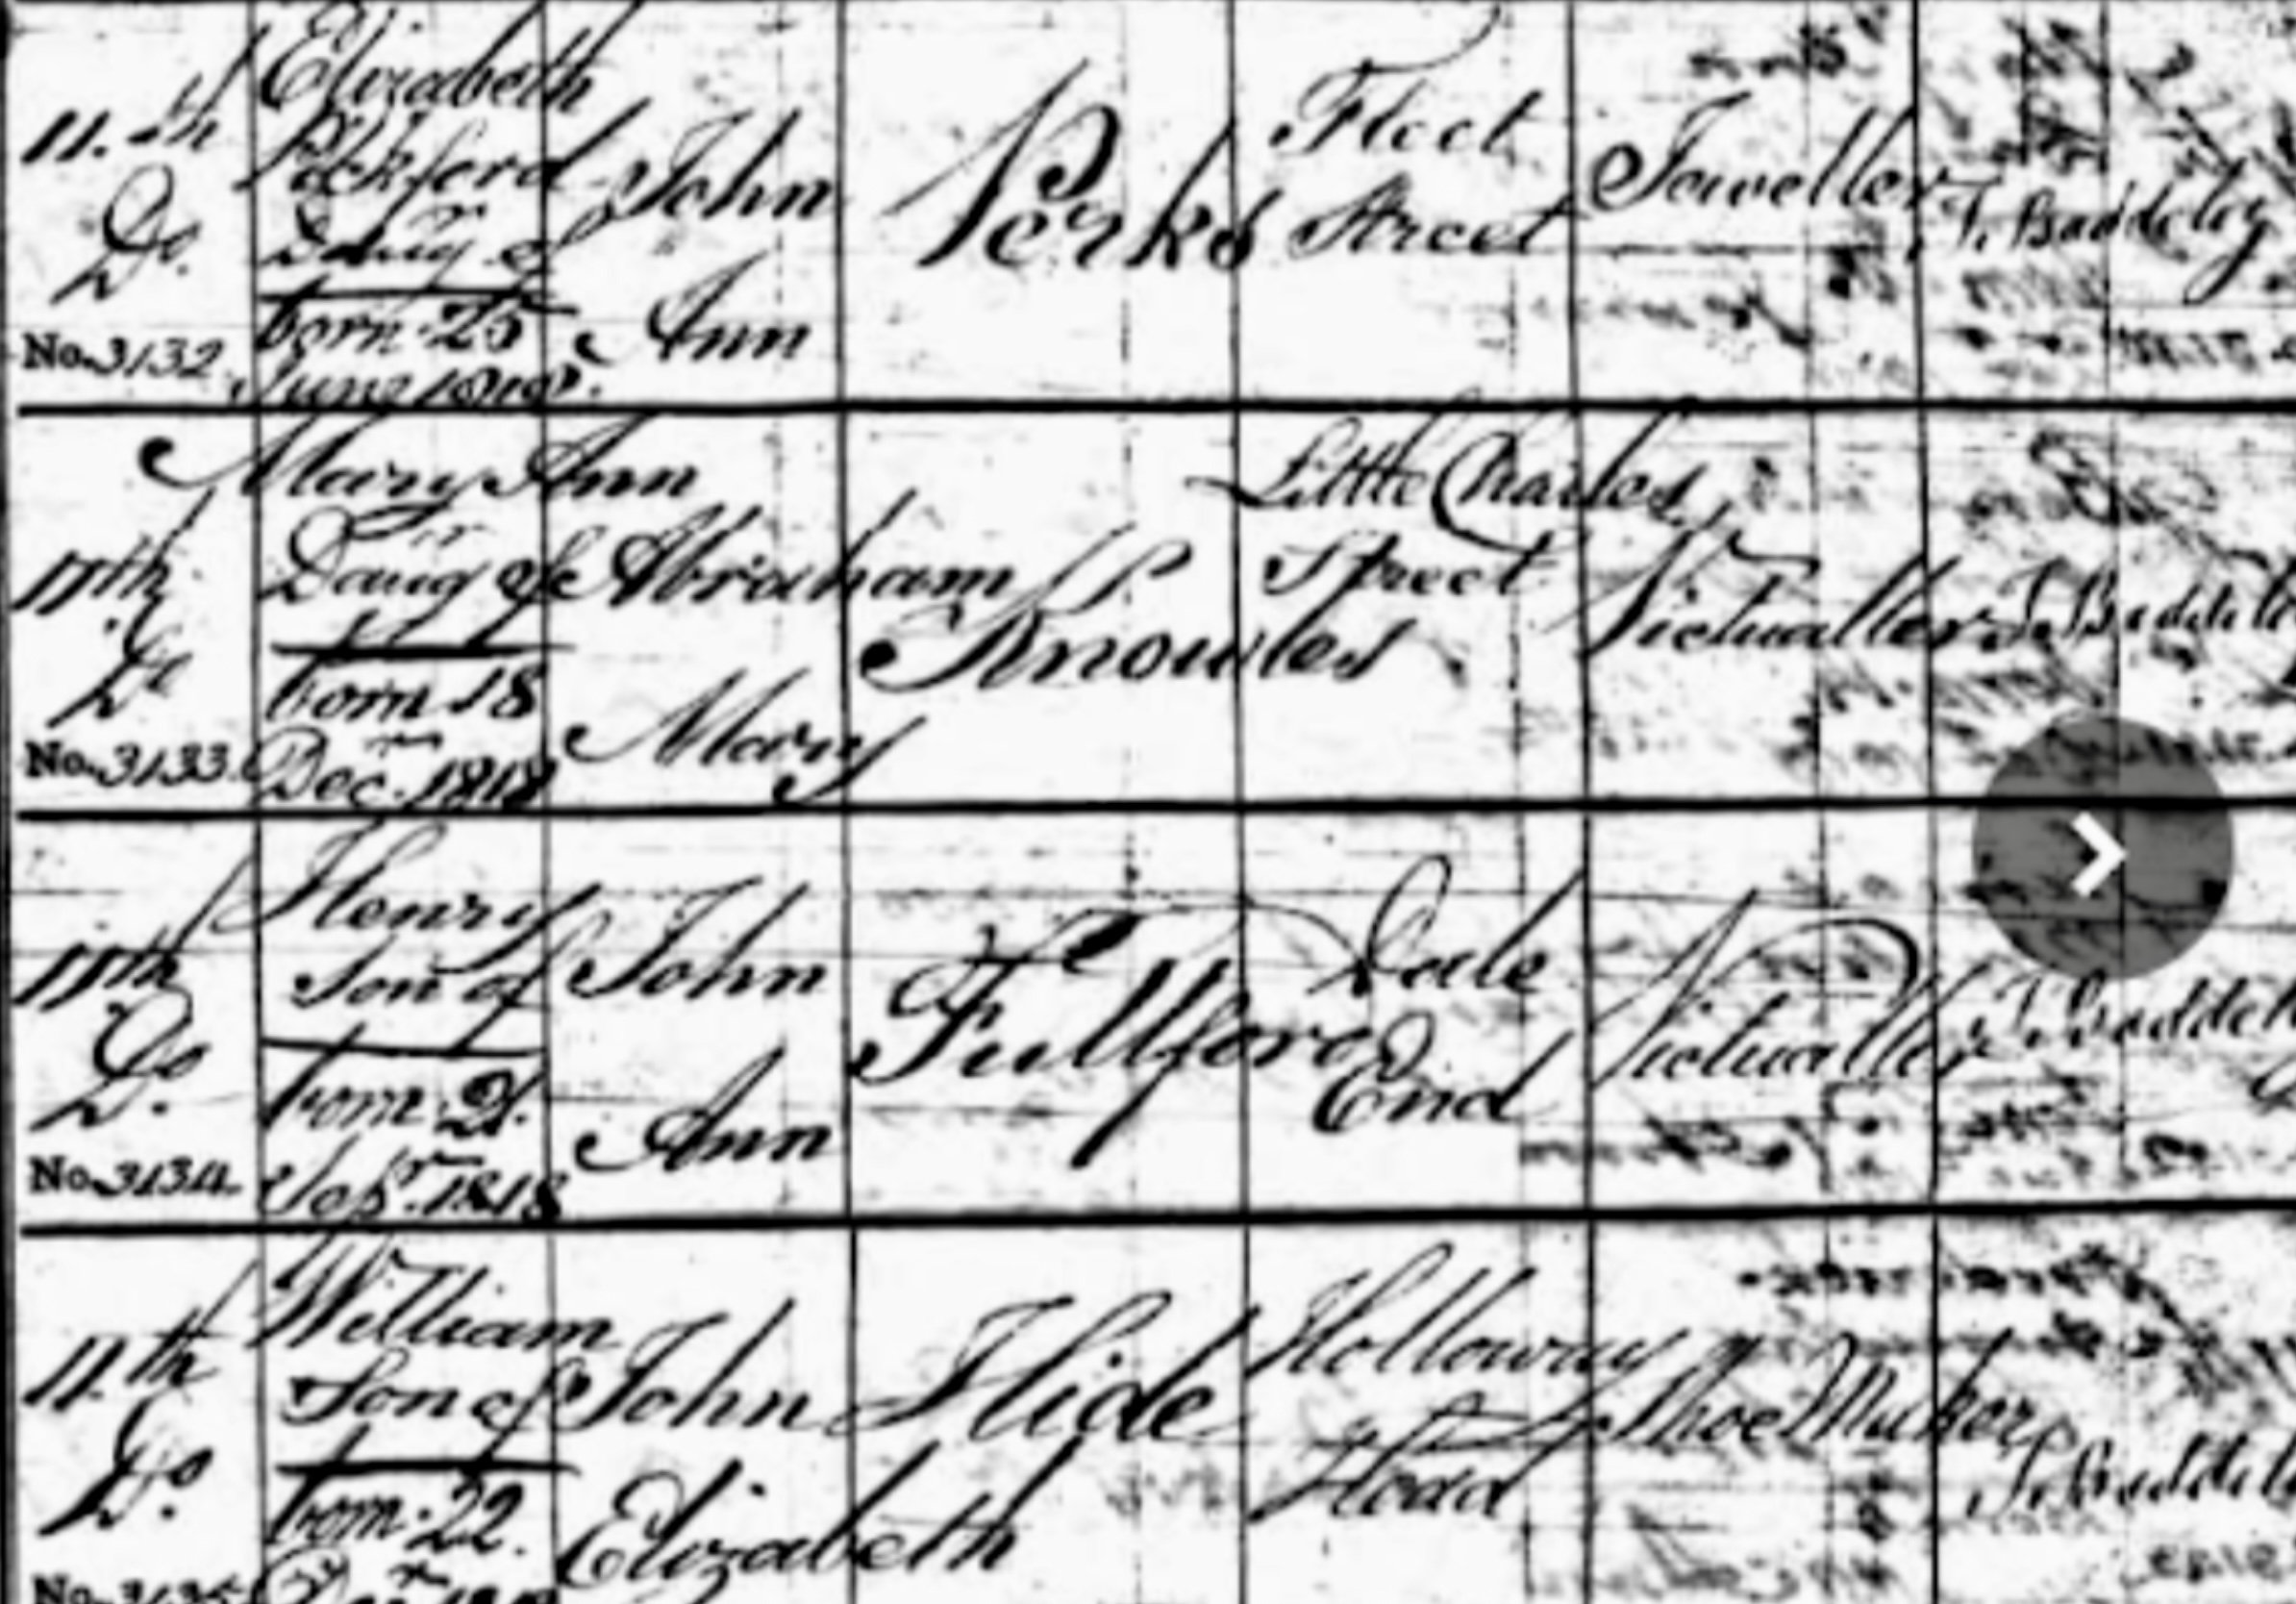 11.th
Do.
No. 3132.
Elizabeth
Pickford
Daugr of
born 25
June 1818.
John
Ann
Perks
Fleet
Street
Jeweller
T. Baddeley
11th
Do
No. 3133.
Mary Ann
Daugr of
born 18
Decr. 1818
Abraham
Mary
Knowles
Little Charles
Street
Victualler
T. Baddele
11th
Do.
No. 3134.
Henry
Son of
born 21.
Sepr. 1818
John
Ann
Fullford
Dale
End
Victualler
T. Baddele
11.th
Do.
No. 3135
William
Son of
born 22.
John
Elizabeth
Hide
Holloway
Head
Shoe Maker
T. Baddele